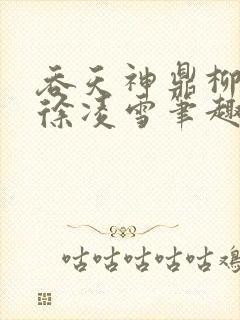 吞天神鼎柳
徐凌雪笔趣
咕咕咕咕咕鸡